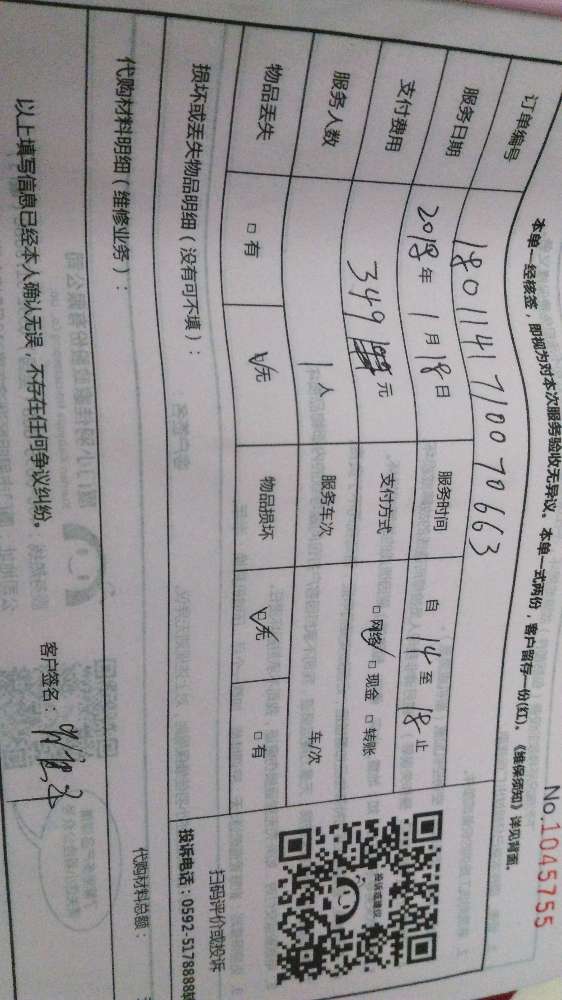 No.1045755
本单一经核签，即视为对本次服务验收无异议。本单一式两份，客户留存一份(红)。《维保须知》详见背面。
订单编号 180114171007 0663
服务日期 2018年1月18日 服务时间 自 14 至 18 止
支付费用 349 元 支付方式 □网络 □现金 □转账
服务人数 1人 服务车次 车/次
物品丢失 □有 □无 物品损坏 □无 □有
损坏或丢失物品明细（没有可不填）：
代购材料明细（维修业务）：
代购材料总额：
以上填写信息已经本人确认无误，不存在任何争议纠纷。
客户签名：
投诉或建议
扫码评价或投诉
投诉电话：0592-5178888